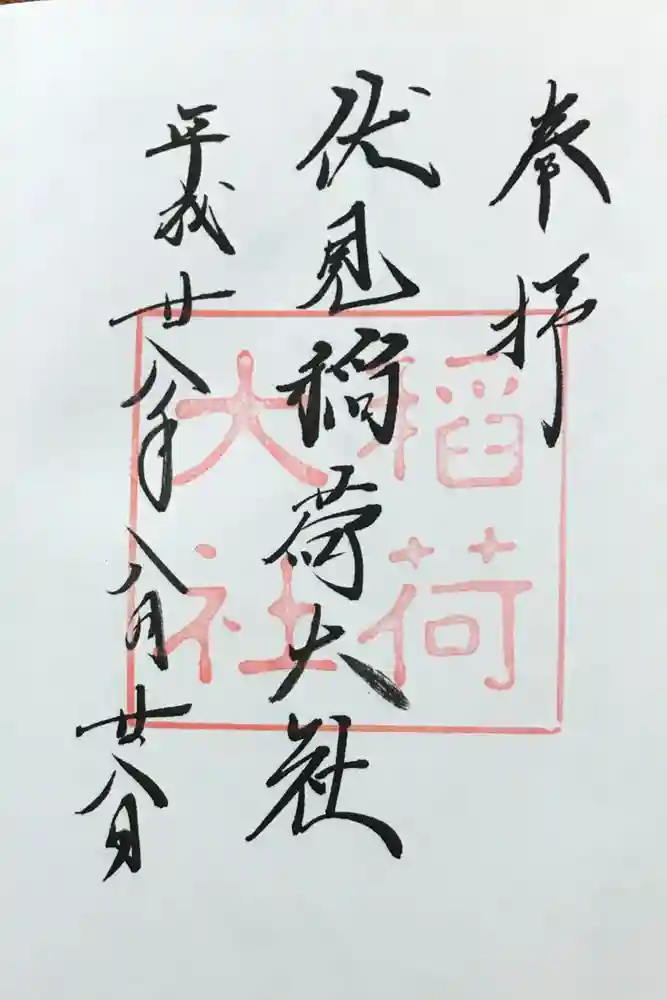 奉拝
伏見稲荷大社
平成廿八年八月廿八日
稲荷
大社